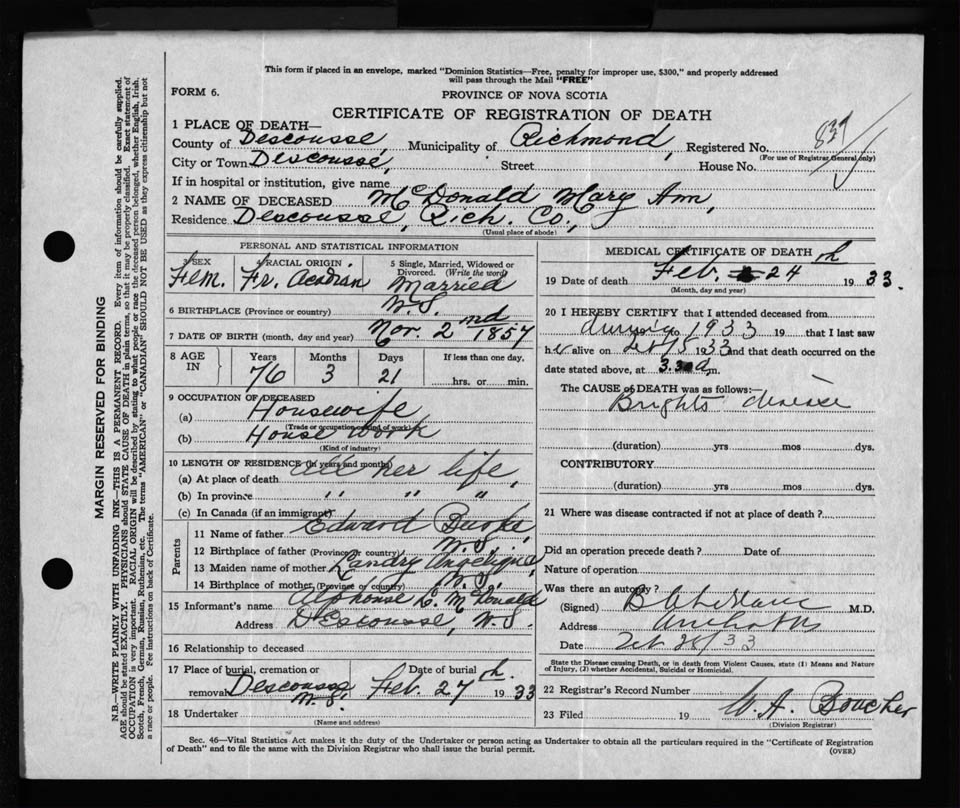 This form if placed in an envelope, marked "Dominion Statistics—Free, penalty for improper use, $300," and properly addressed
will pass through the Mail "FREE"
FORM 6.
PROVINCE OF NOVA SCOTIA
CERTIFICATE OF REGISTRATION OF DEATH
1 PLACE OF DEATH—
County of Descousse, Municipality of Richmond, Registered No. 839
(For use of Registrar General only)
City or Town Descousse, Street House No.
If in hospital or institution, give name
2 NAME OF DECEASED McDonald Mary Ann,
Residence Descousse, Rich. Co.,
(Usual place of abode)
PERSONAL AND STATISTICAL INFORMATION
3 SEX Fem.
4 RACIAL ORIGIN Fr. Acadian
5 Single, Married, Widowed or Divorced. (Write the word) Married
6 BIRTHPLACE (Province or country) N.S.
7 DATE OF BIRTH (month, day and year) Nov. 2nd 1857
8 AGE IN Years Months Days If less than one day,
76 3 21 hrs. or min.
9 OCCUPATION OF DECEASED
(a) Housewife
(Trade or occupation or kind of work)
(b) House work
(Kind of industry)
10 LENGTH OF RESIDENCE (in years and months)
(a) At place of death all her life,
(b) In province " " "
(c) In Canada (if an immigrant)
Parents
11 Name of father Edward Burke
12 Birthplace of father (Province or country) N.S.
13 Maiden name of mother Landry Angelique
14 Birthplace of mother (Province or country) N.S.
15 Informant's name Alphonse L. McDonald
Address Descousse, N.S.
16 Relationship to deceased
17 Place of burial, cremation or removal Descousse N.S. Date of burial Feb. 27th 1933
18 Undertaker
(Name and address)
MEDICAL CERTIFICATE OF DEATH
19 Date of death Feb. 24th 1933.
(Month, day and year)
20 I HEREBY CERTIFY that I attended deceased from
during to 1933 19 that I last saw
her alive on Feb 15 1933 and that death occurred on the
date stated above, at m.
The CAUSE of DEATH was as follows:
Brights disease
(duration) yrs mos dys.
CONTRIBUTORY
(duration) yrs mos dys.
21 Where was disease contracted if not at place of death?
Did an operation precede death? Date of
Nature of operation
Was there an autopsy?
(Signed) M.D.
Address Arichat NS
Date Feb 28/33
State the Disease causing Death, or in death from Violent Causes, state (1) Means and Nature
of Injury, (2) whether Accidental, Suicidal or Homicidal.
22 Registrar's Record Number
23 Filed 19 W. A. Boucher
(Division Registrar)
Sec. 46—Vital Statistics Act makes it the duty of the Undertaker or person acting as Undertaker to obtain all the particulars required in the "Certificate of Registration
of Death" and to file the same with the Division Registrar who shall issue the burial permit.
(OVER)
MARGIN RESERVED FOR BINDING
N.B.—WRITE PLAINLY WITH UNFADING INK—THIS IS A PERMANENT RECORD. Every item of information should be carefully supplied.
AGE should be stated EXACTLY. PHYSICIANS should STATE CAUSE OF DEATH in plain terms, so that it may be properly classified. Exact statement of
OCCUPATION is very important. RACIAL ORIGIN will be described by stating to what people or race the deceased person belonged, whether English, Irish,
Scotch, French, German, Russian, Ruthenian, etc. The terms "AMERICAN" or "CANADIAN" SHOULD NOT BE USED as they express citizenship but not
a race or people. Fee instructions on back of Certificate.